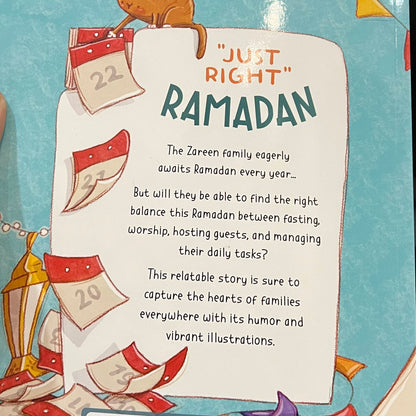 "JUST
RIGHT"
RAMADAN
The Zareen family eagerly
awaits Ramadan every year...
But will they be able to find the right
balance this Ramadan between fasting,
worship, hosting guests, and managing
their daily tasks?
This relatable story is sure to
capture the hearts of families
everywhere with its humor and
vibrant illustrations.
22
21
20
19